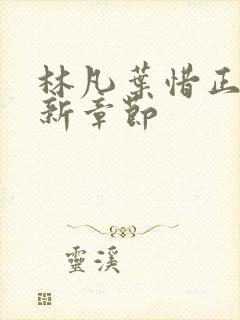 林凡葉惜正
新章節
靈溪